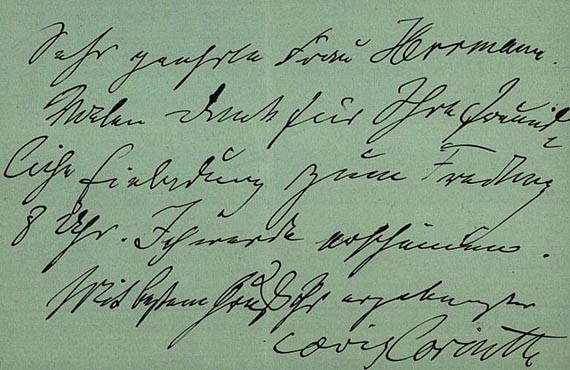 Sehr geehrte Frau Herrmann.
Vielen Dank für Ihre freund-
liche Einladung zum Freitag
8 Uhr. Ich werde erscheinen.
Mit bestem Gruß Ihr ergebenster
Lovis Corinth